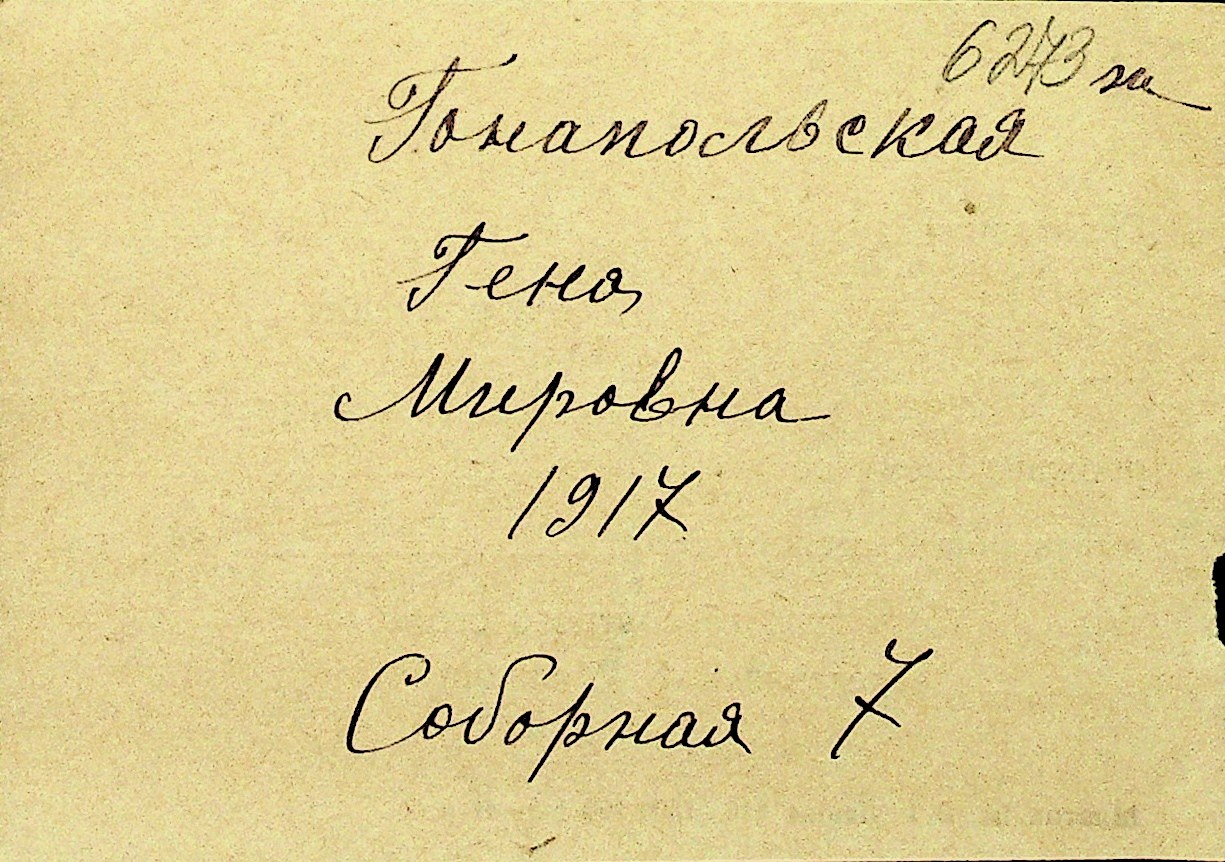 6273 ж
Гонапольская
Гена
Мировна
1917
Соборная 7